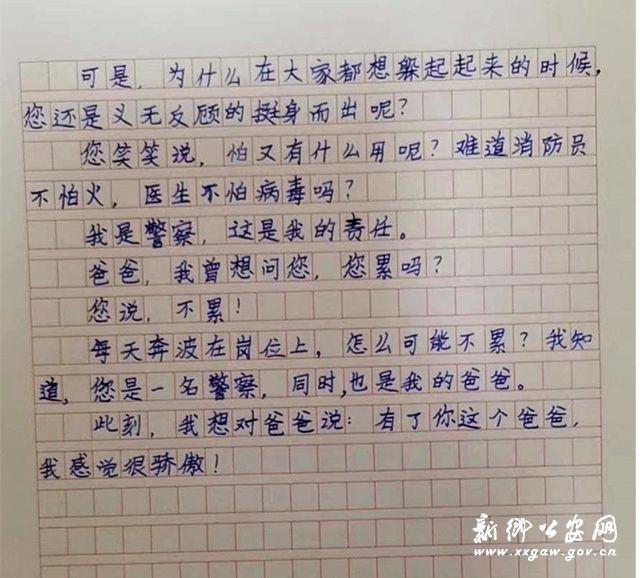 可是，为什么在大家都想躲起起来的时候，
您还是义无反顾的挺身而出呢？
您笑笑说，怕又有什么用呢？难道消防员
不怕火，医生不怕病毒吗？
我是警察，这是我的责任。
爸爸，我曾想问您，您累吗？
您说，不累！
每天奔波在岗位上，怎么可能不累？我知
道，您是一名警察，同时，也是我的爸爸。
此刻，我想对爸爸说：有了你这个爸爸，
我感觉很骄傲！
新乡公安网
www.xxgaw.gov.cn